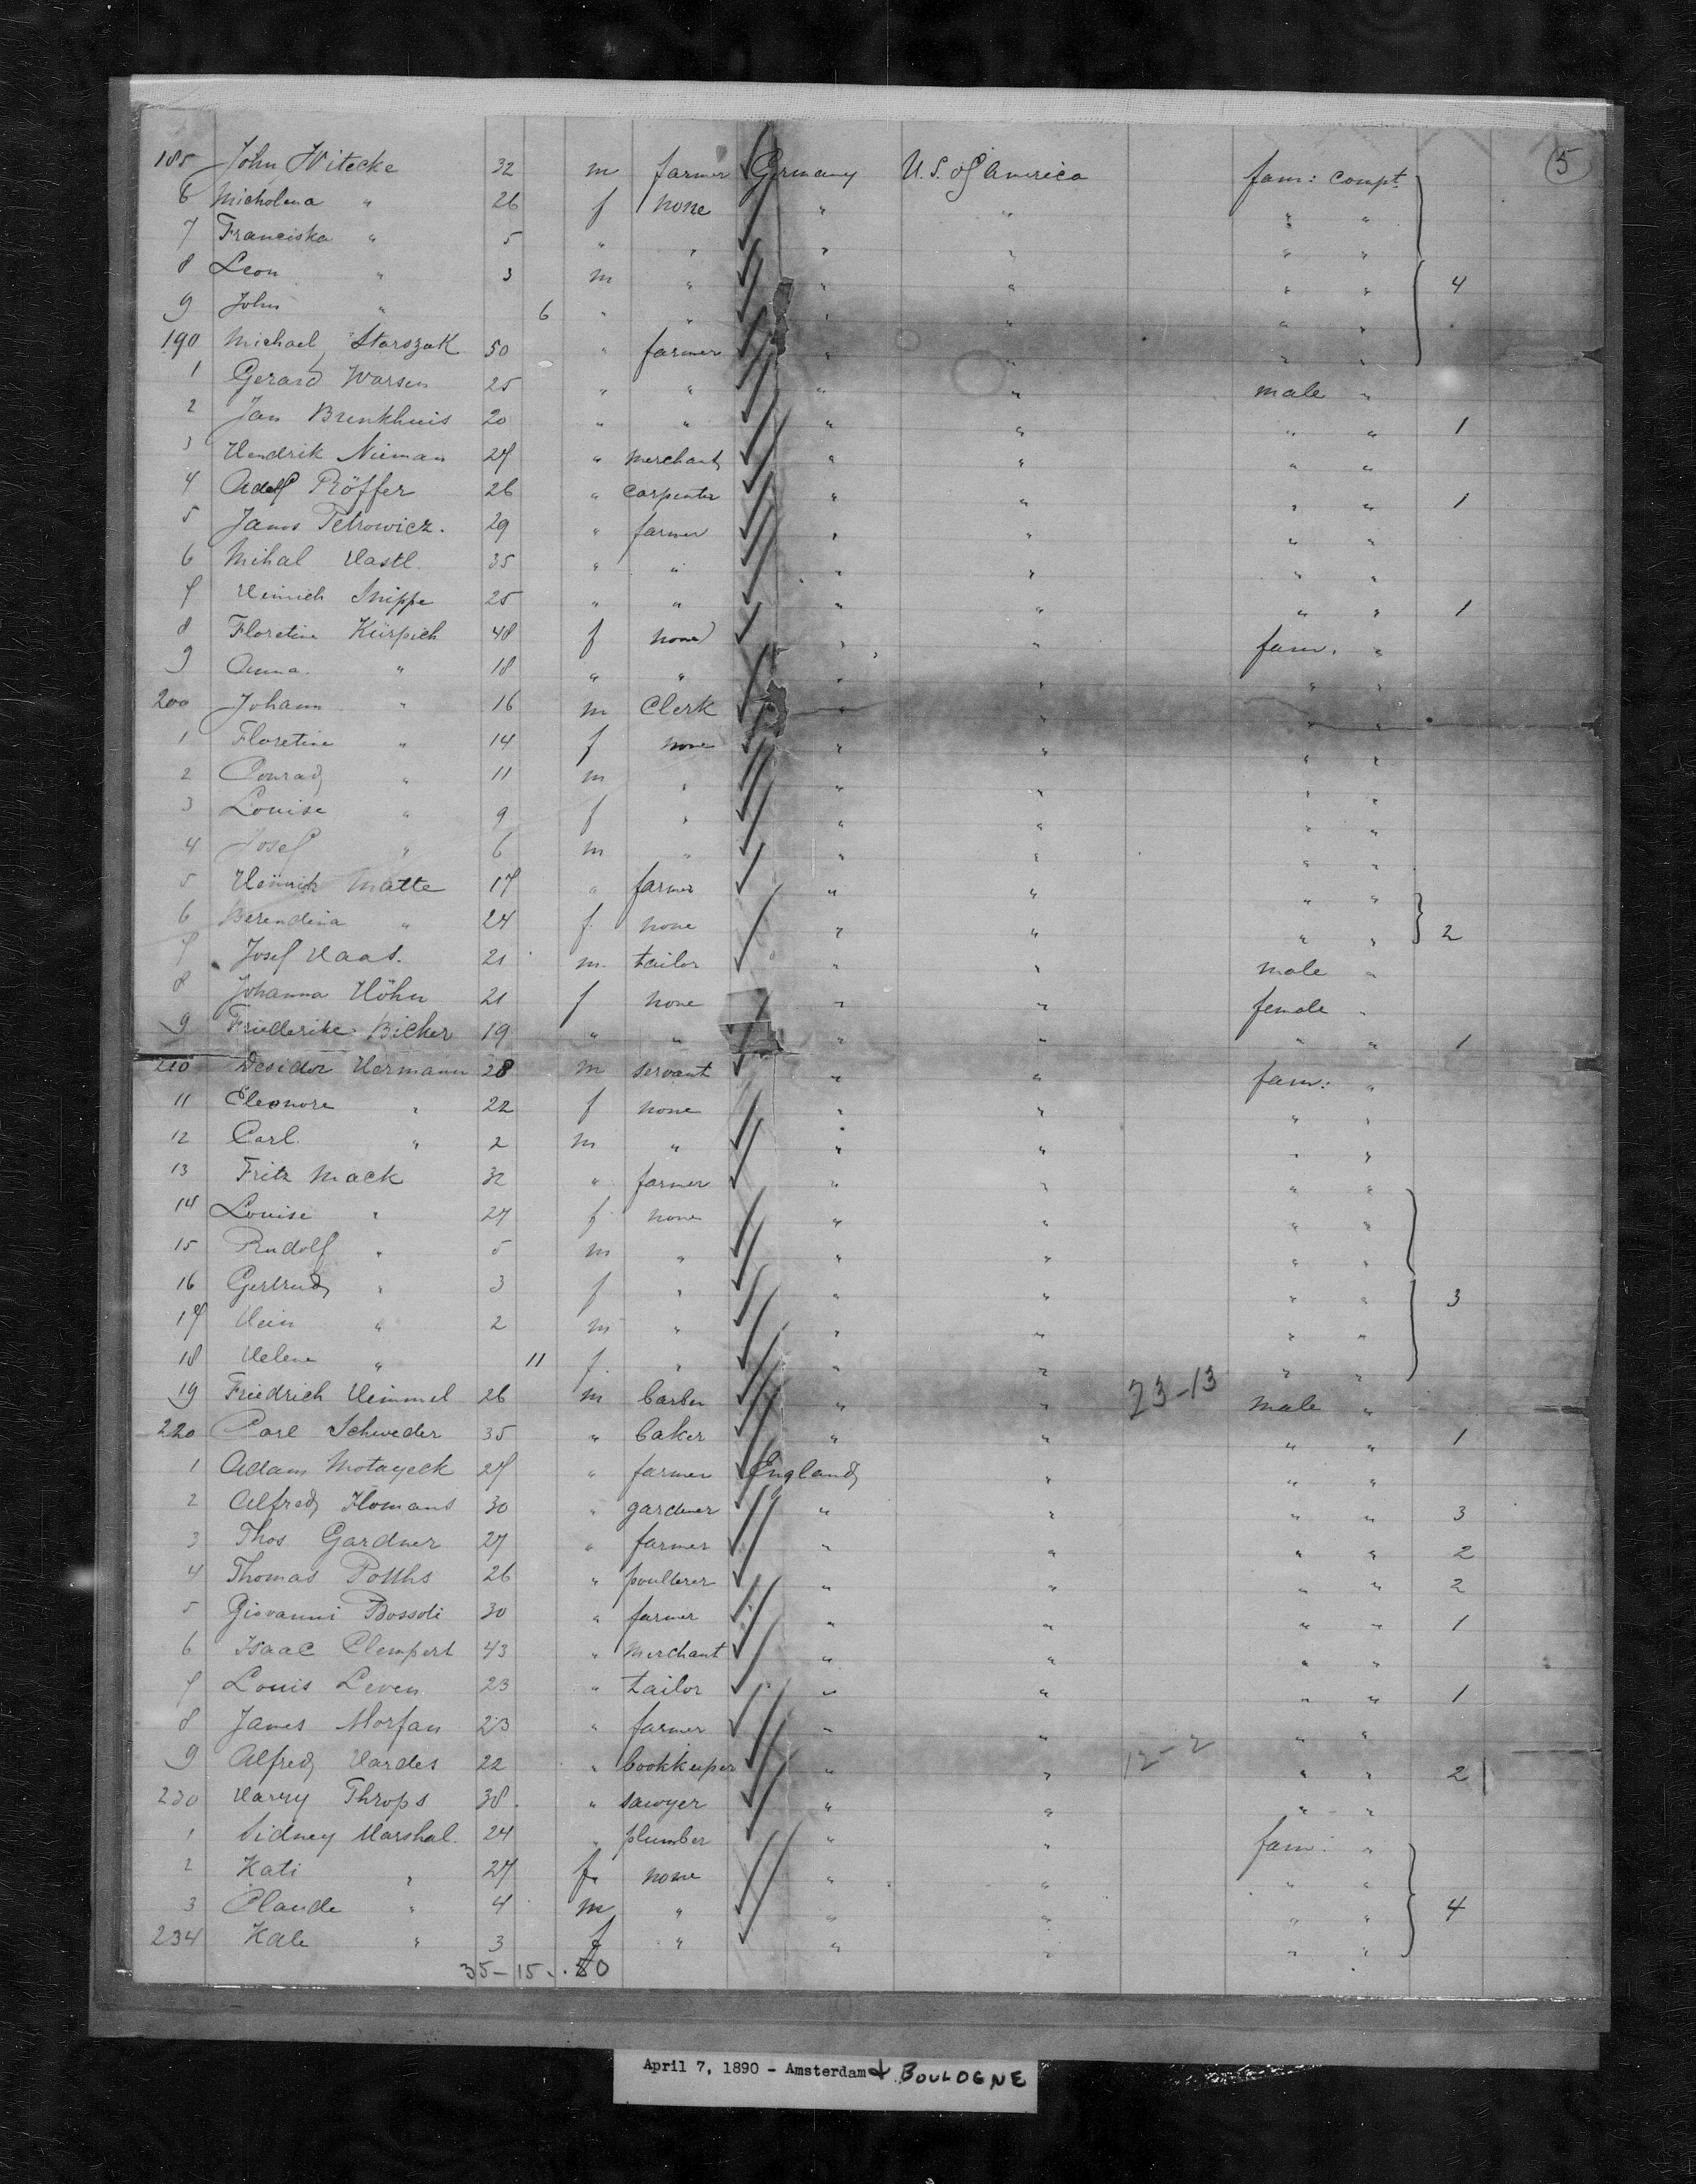 5
185 John Witecke 32 m farmer Germany U.S. of America fam: compt.
6 Micholena " 26 f none " " " "
7 Franciska " 5 " " " " " "
8 Leon " 3 m " " " " " 4
9 John " 6 " " " " " "
190 Michael Starszak 50 " farmer " " " "
1 Gerard Warsen 25 " " " " male "
2 Jan Brinkhuis 20 " " " " " " 1
3 Hendrik Nieman 27 " merchant " " " "
4 Adolf Röffer 26 " carpenter " " " " 1
5 Janos Petrowicz. 29 " farmer " " " "
6 Mihal Hastl 35 " " " " " "
7 Heinrich Snippe 25 " " " " " " 1
8 Floretine Kürpich 48 f none " " fam. "
9 Anna " 18 " " " " " "
200 Johann " 16 m Clerk " " " "
1 Floretine " 14 f none " " " "
2 Conrad " 11 m " " " " "
3 Louise " 9 f " " " " "
4 Josef " 6 m " " " " "
5 Heinrich Matte 17 " farmer " " " "
6 Berendina " 24 f. none " " " " 2
7 Josef Haas. 21 m. tailor " " male "
8 Johanna Höhn 21 f none " " female "
9 Friederike Bicker 19 " " " " " " 1
210 Desidor Hermann 28 m servant " " fam: "
11 Eleonore " 22 f none " " " "
12 Carl " 2 m " " " " "
13 Fritz Mack 32 " farmer " " " "
14 Louise " 27 f none " " " "
15 Rudolf " 5 m " " " " "
16 Gertrud " 3 f " " " " " 3
17 Hein " 2 m " " " " "
18 Helene " 11 f. " " " " "
19 Friedrich Himmel 26 m barber " " 23-13 male "
220 Carl Schweder 35 " baker " " " " 1
1 Adam Motayeck 27 " farmer England " " "
2 Alfred Homans 30 " gardener " " " " 3
3 Thos Gardner 27 " farmer " " " " 2
4 Thomas Potths 26 " poulterer " " " " 2
5 Giovanni Bossoli 30 " farmer " " " " 1
6 Isaac Clempert 43 " merchant " " " "
7 Louis Leven 23 " tailor " " " " 1
8 James Morfan 23 " farmer " " " "
9 Alfred Hardes 22 " bookkeeper " " 12-2 " " 2
230 Harry Throps 38. " sawyer " " " "
1 Sidney Marshal. 24 " plumber " " fam: "
2 Kati " 27 f. none " " " "
3 Claude " 4 m " " " " " 4
234 Kate " 3 f " " " " "
35-15-.50
April 7, 1890 - Amsterdam + BOULOGNE